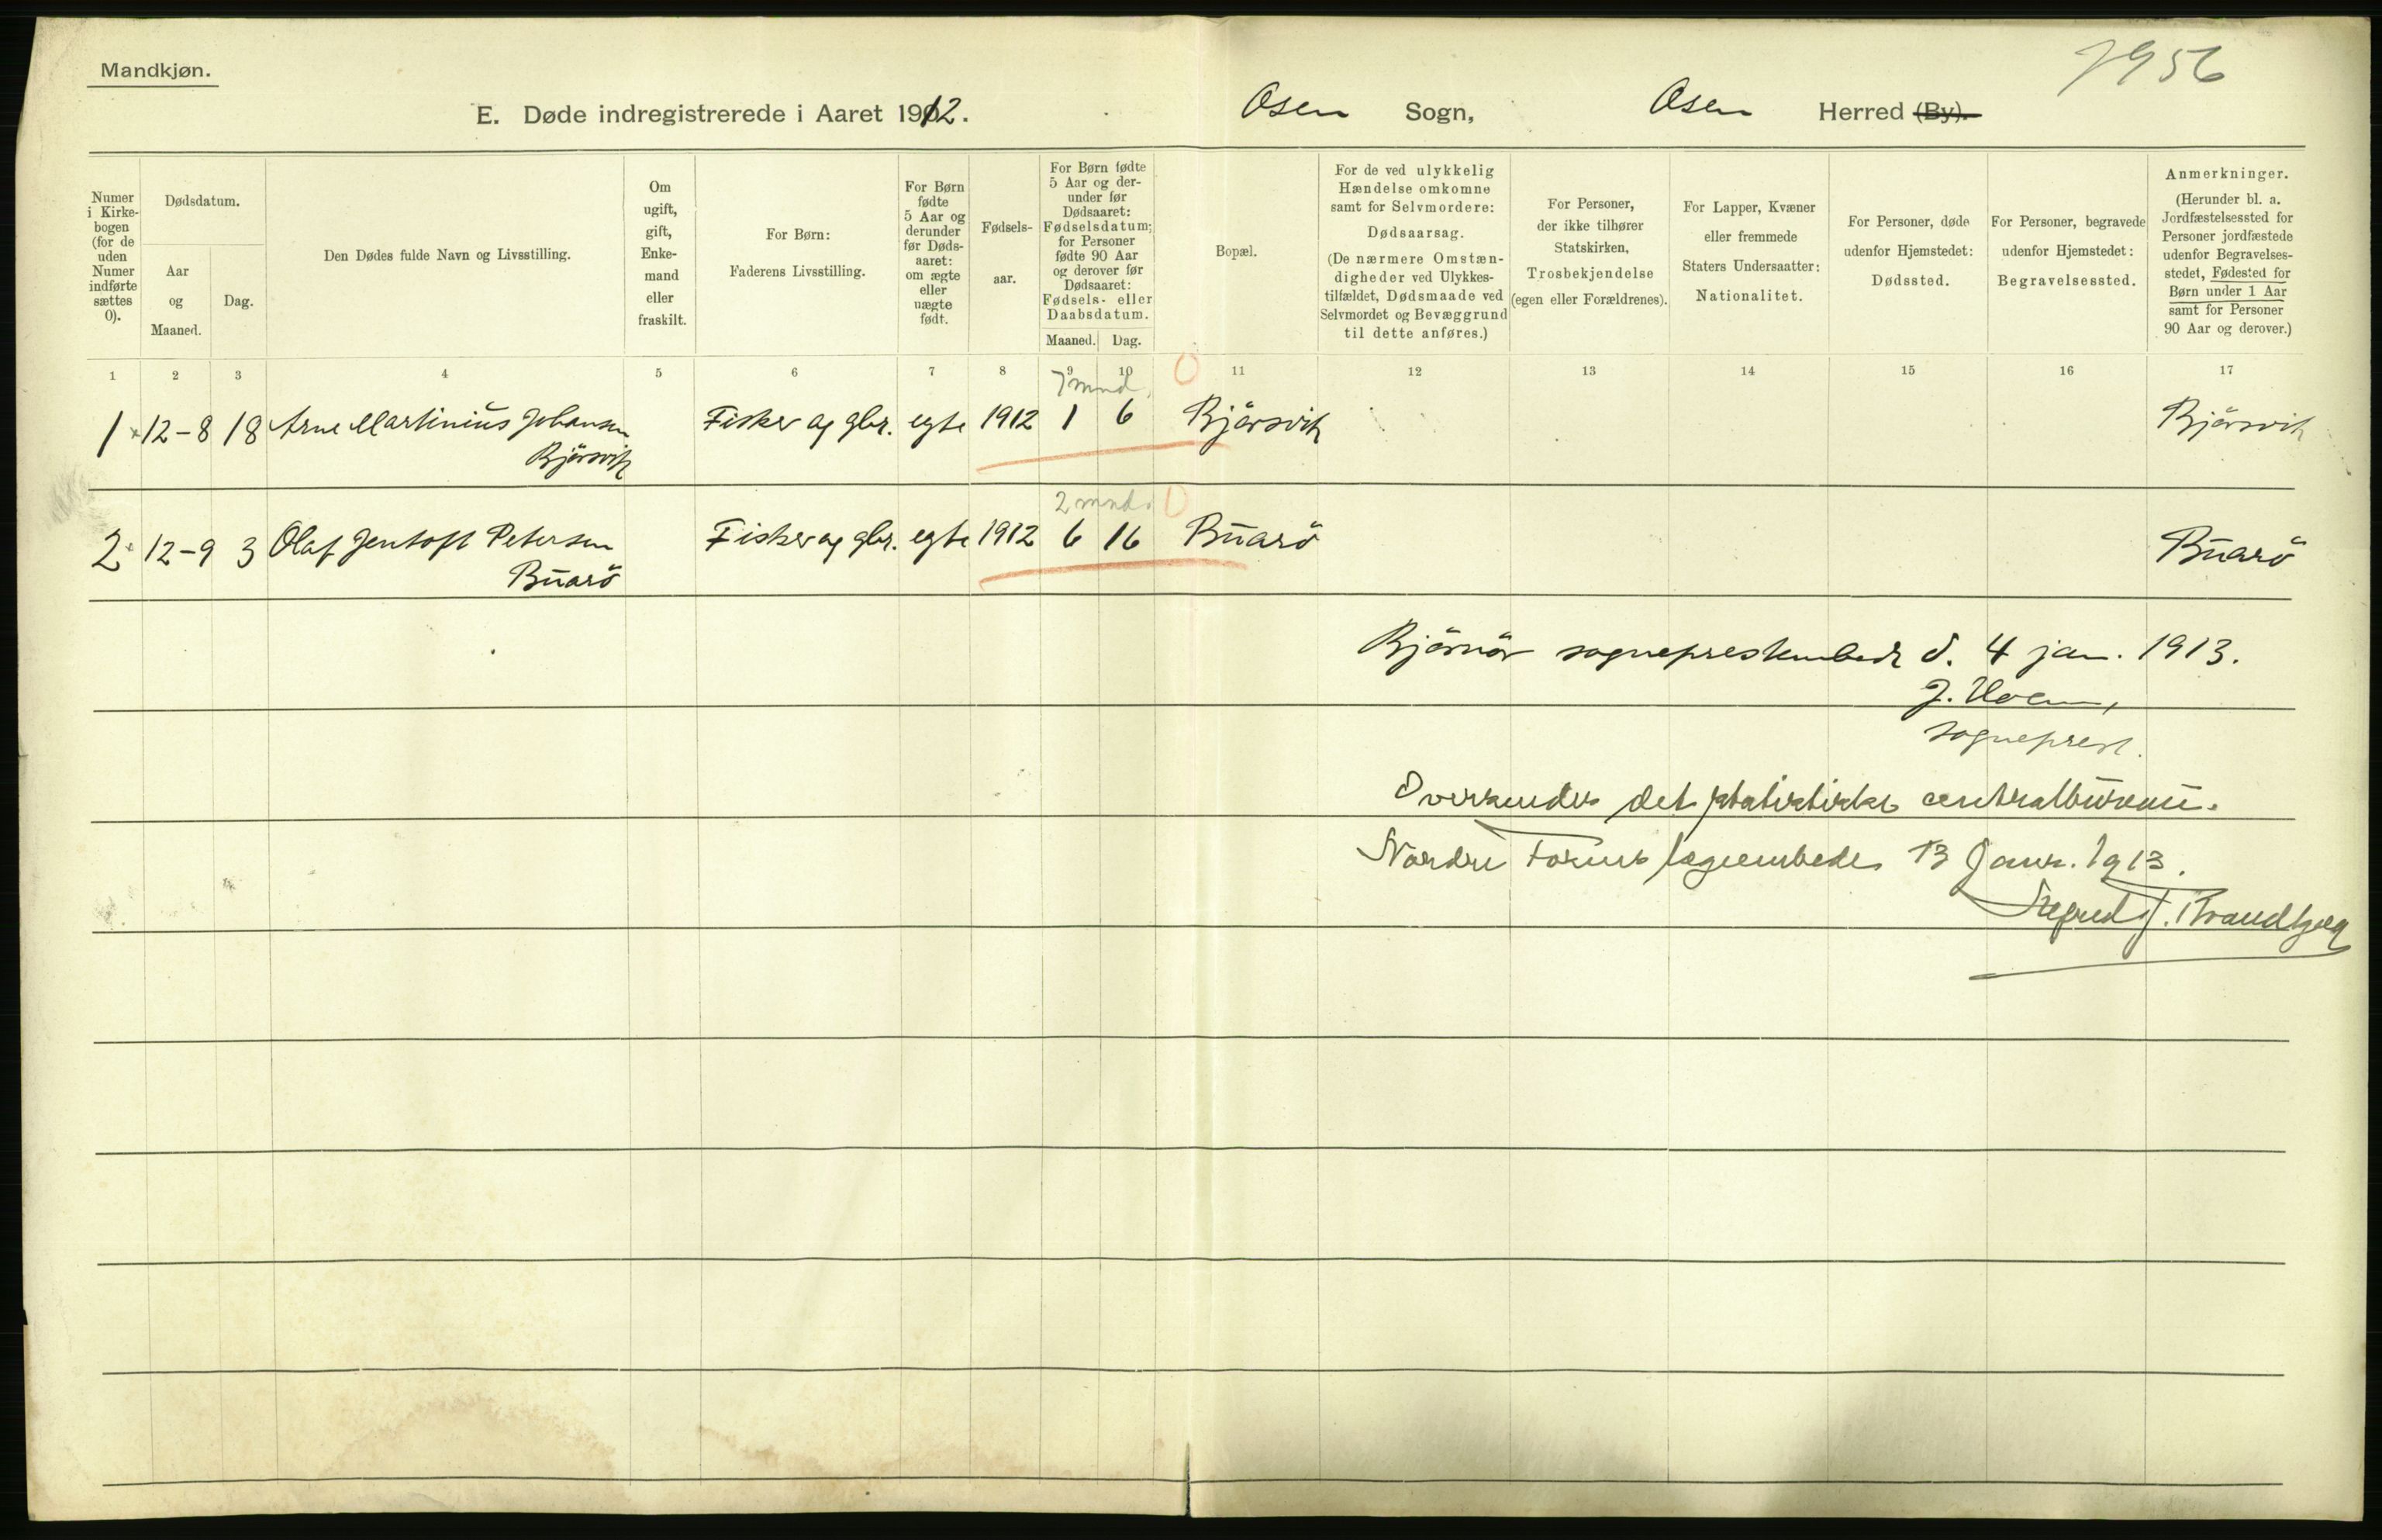 Mandkjøn.
7956
E. Døde indregistrerede i Aaret 1912. Osen Sogn, Osen Herred (By).
Numer i Kirke-bogen (for de uden Numer indførte sættes 0).
Dødsdatum.
Aar og Maaned.
Dag.
Den Dødes fulde Navn og Livsstilling.
Om ugift, gift, Enke-mand eller fraskilt.
For Børn:
Faderens Livsstilling.
For Børn fødte 5 Aar og derunder før Døds-aaret: om ægte eller uægte født.
Fødsels-aar.
For Børn fødte 5 Aar og der-under før Dødsaaret: Fødselsdatum; for Personer fødte 90 Aar og derover før Dødsaaret: Fødsels- eller Daabsdatum.
Maaned. Dag.
Bopæl.
For de ved ulykkelig Hændelse omkomne samt for Selvmordere: Dødsaarsag.
(De nærmere Omstæn-digheder ved Ulykkes-tilfældet, Dødsmaade ved Selvmordet og Bevæggrund til dette anføres.)
For Personer, der ikke tilhører Statskirken, Trosbekjendelse (egen eller Forældrenes).
For Lapper, Kvæner eller fremmede Staters Undersaatter: Nationalitet.
For Personer, døde udenfor Hjemstedet: Dødssted.
For Personer, begravede udenfor Hjemstedet: Begravelsessted.
Anmerkninger.
(Herunder bl. a. Jordfæstelsessted for Personer jordfæstede udenfor Begravelses-stedet, Fødested for Børn under 1 Aar samt for Personer 90 Aar og derover.)
1 2 3 4 5 6 7 8 9 10 11 12 13 14 15 16 17
7 mnd. 0
1 12-8 18 Arne Martinius Johansen Fisker og gbr. egte 1912 1 6 Bjørsvik Bjørsvik
Bjørsvik
2 mnd. 0
2 12-9 3 Olaf Jentoft Petersen Fisker og gbr. egte 1912 6 16 Buarö Buarö
Buarö
Björnör sogneprestembede d. 4 jan. 1913.
J. Hoem,
sogneprest.
Oversendes det statistiske centralbureau.
Nordre Fosens lægeembede 13 Janr. 1913.